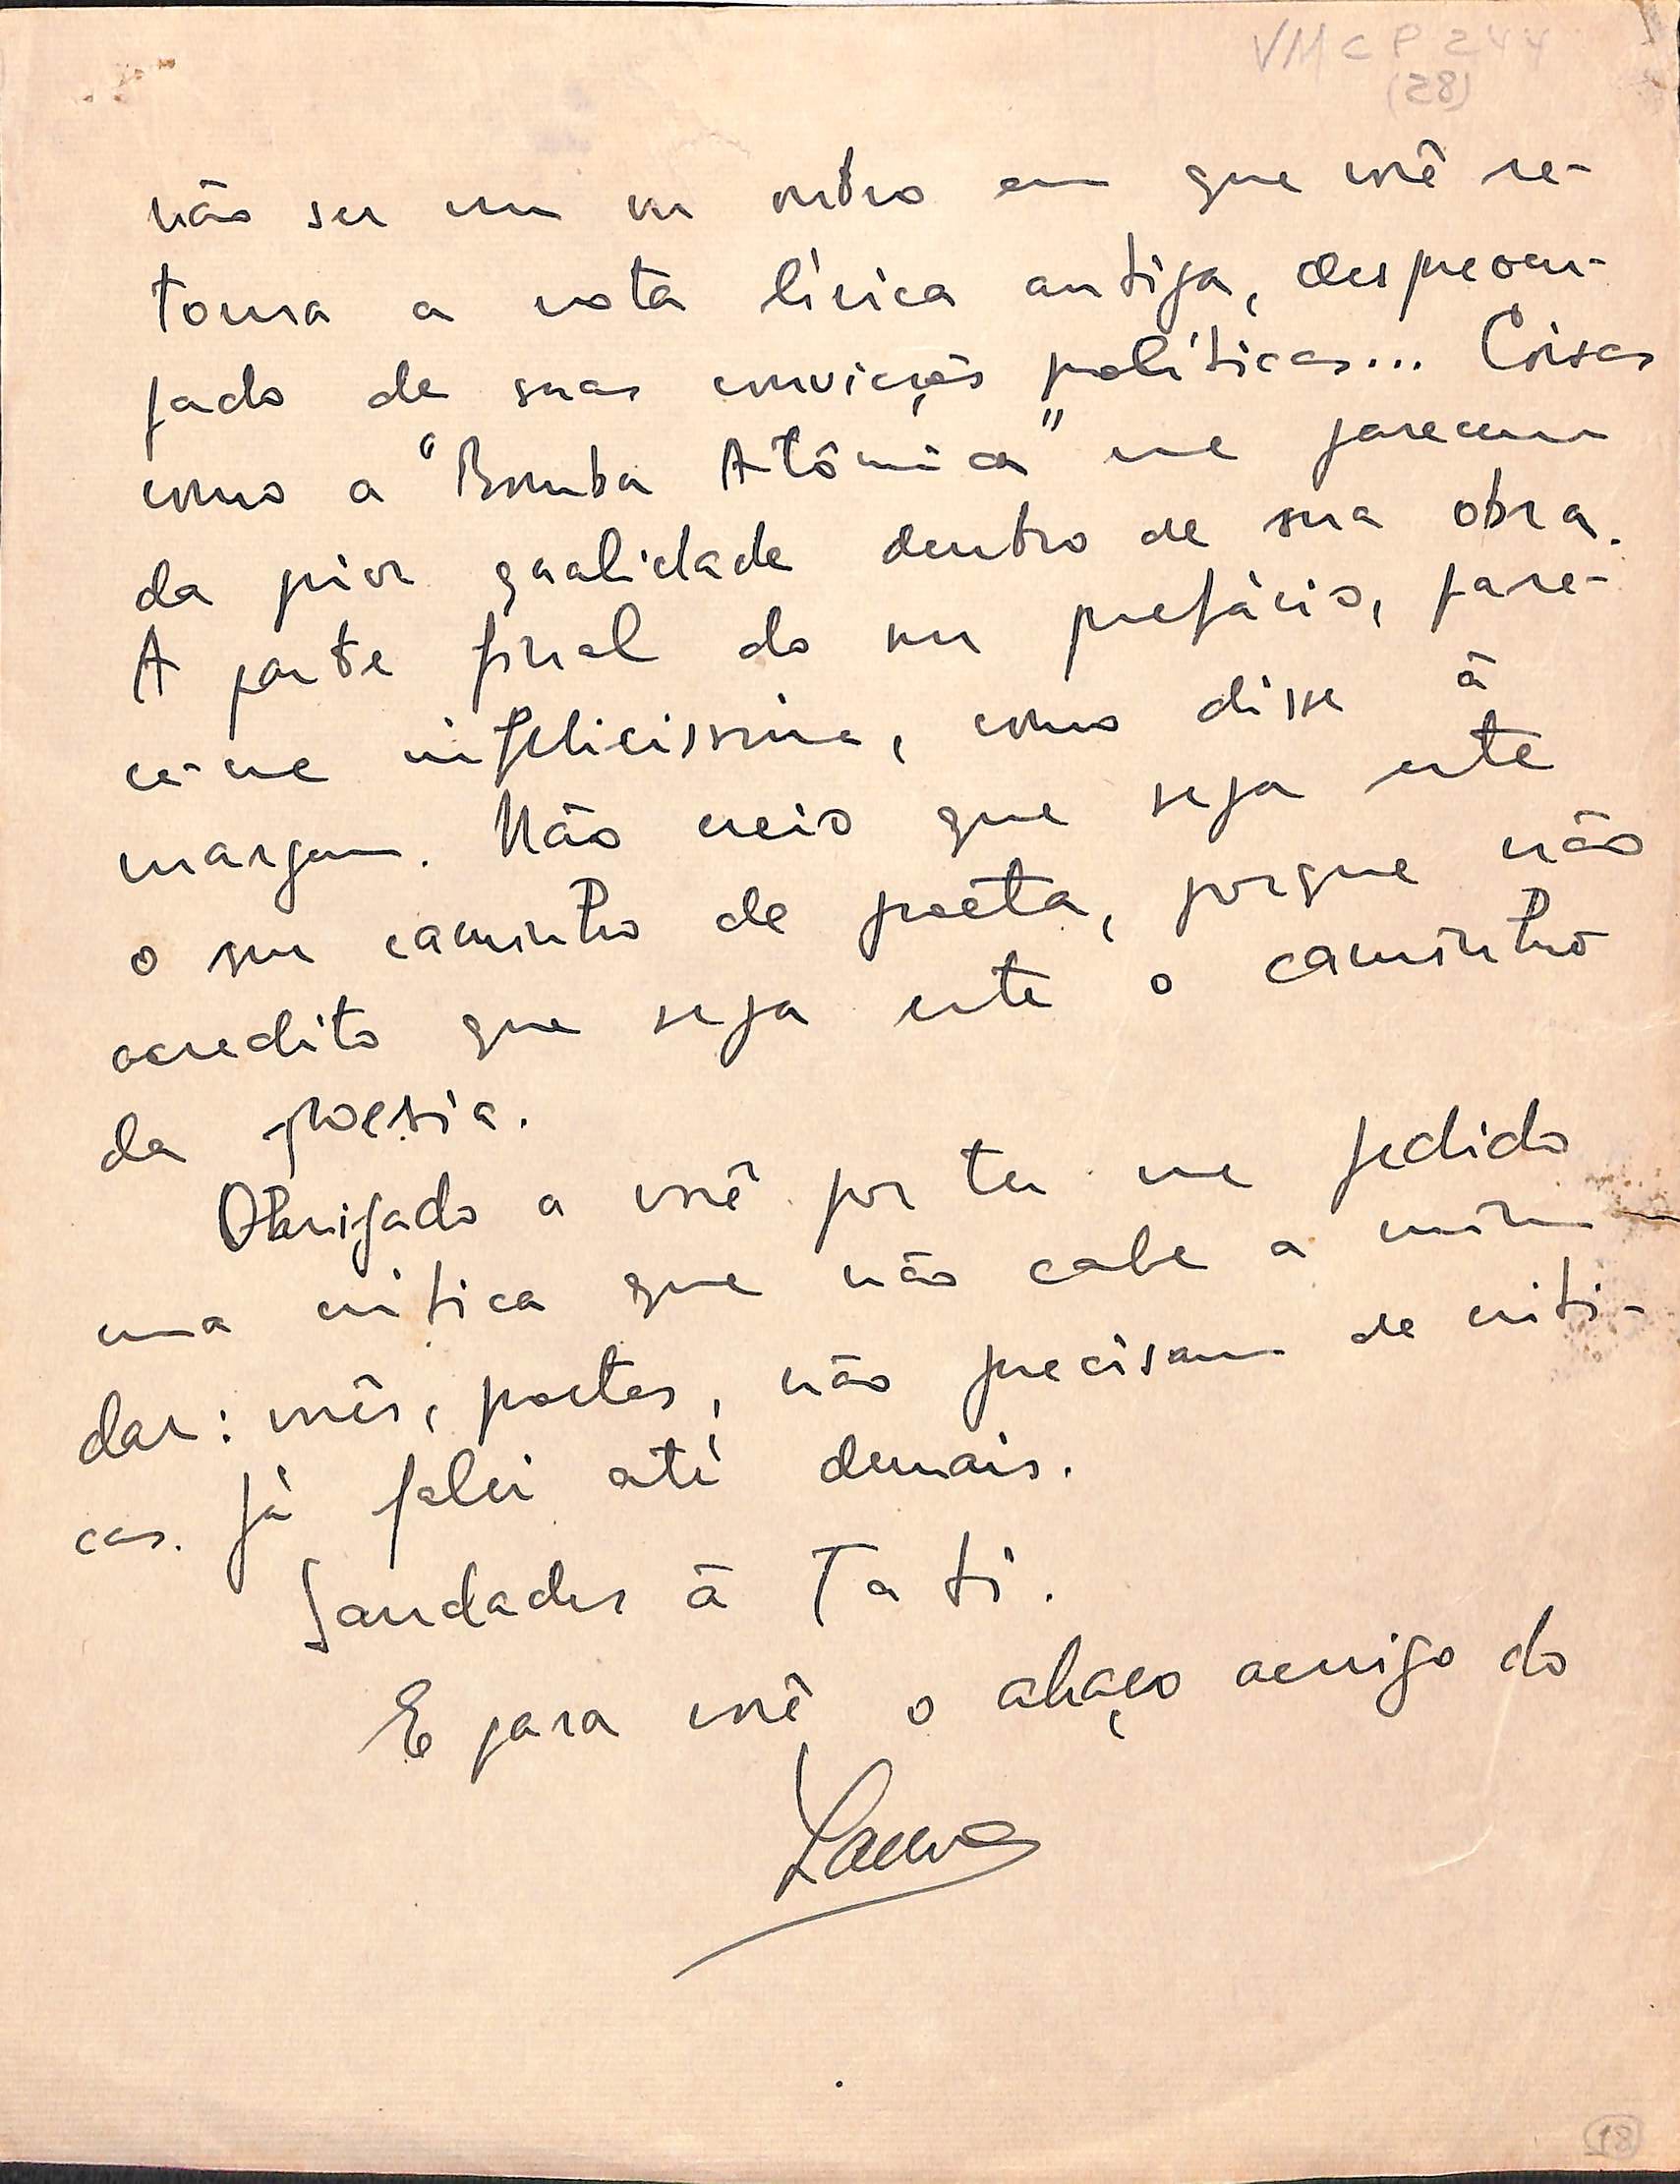 VM CP 244
(28)
não ser um ou outro em que você re-
toma a nota lírica antiga, despreocu-
pado de suas convicções políticas... Coisas
como a "Bomba Atômica" me parecem
da pior qualidade dentro de sua obra.
A parte final do seu prefácio, pare-
ce-me infelicissima, como disse à
margem. Não creio que seja este
o seu caminho de poeta, porque não
acredito que seja este o caminho
da poesia.
Obrigado a você por ter me pedido
uma critica que não cabe a mim
dar: vocês, poetas, não precisam de criti-
cas. Já falei até demais.
Saudades à Tati.
E para você o abraço amigo do
Lauro
18